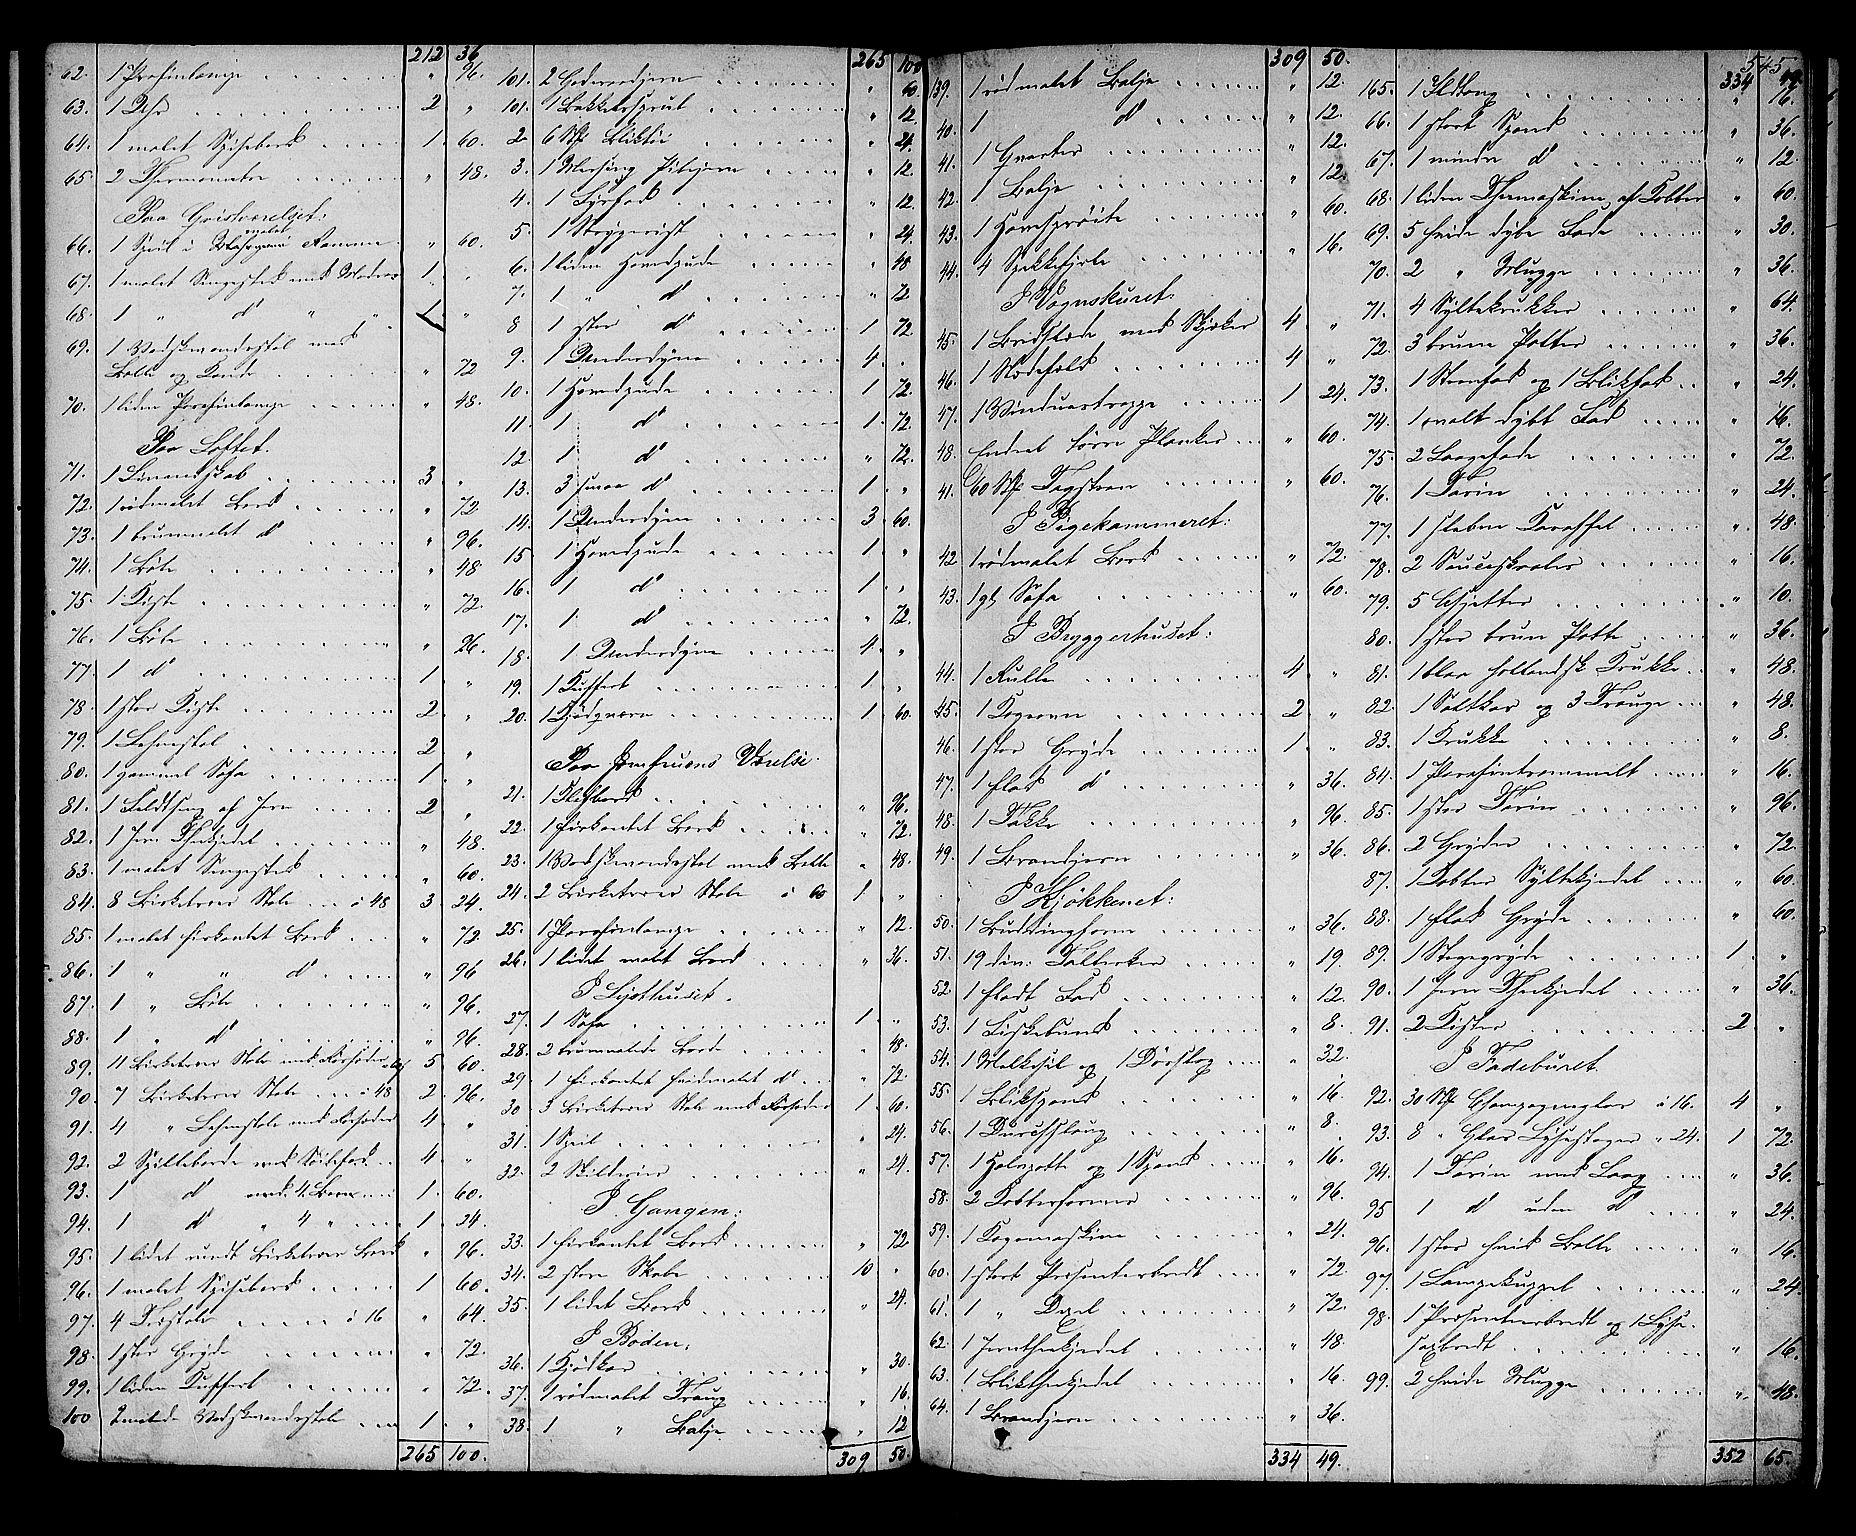 212 36
62. 1 Parafinlampe . . . . " 96.
63. 1 Uhr . . . . 2 "
64. 1 malet Spisebord . . . . 1. 60.
65. 2 Thermometre . . . . " 48.
Paa Gæstværelset:
66. 1 Speil i malet Ramme . " 60.
67. 1 malet Sengested med 1 "
68. 1 " d° " "
69. 1 Vadskevandsstol med
Bolle og Kande . . . . " 72
70. 1 liden Parafinlampe . . . . " 48.
Paa Loftet.
71. 1 Linnedskab . . . . 3 "
72. 1 rødmalet Bord . . . . " 72
73. 1 brunmalet d° . . . . " 96.
74. 1 Bøte . . . . " 48.
75. 1 Kiste . . . . " 72.
76. 1 Bøte . . . . " 26.
77. 1 d° . . . . 1. "
78. 1 stor Kiste . . . . 2 "
79. 1 Lehnstol . . . . 2 "
80. 1 gammel Sofa . . . . 1. "
81. 1 Feldtseng af Jern . . . . 2 "
82. 1 Jern Theekjedel . . . . " 48.
83. 1 malet Sengested . . . . " 60.
84. 8 Birketræes Stole . . . à 48 3. 24.
85. 1 malet firkantet Bord . . . . " 72.
86. 1 " " d° . . . . " 96
87. 1 " Bøte . . . . " 96.
88. 1 " d° . . . . " 96.
89. 11 Birketræes Stole med 5 60.
90. 7 Birketræes Stole . . . à 48 2. 96.
91. 4 " Lehnstole med 4 "
92. 2 Spilleborde med . . 4 "
93. 1 d° med 4 Been . . . 1. 60.
94. 1 d° " 4 " . . . . 1. 24.
95. 1 lidet rundt Birketræes Bord " 96.
96. 1 malet Spisebord . . . . 1 60.
97. 4 Træstole . . . . à 16 " 64.
98. 1 stor Gryde . . . . " 72.
99. 1 liden Kuffert . . . . " 72.
100 2 malede Vadskevandsstole . . . 1. "
265 100.
265 100
101. 2 . . . . " 60
101. 1 . . . . " 12.
2 6 St. . . . . " 24.
3. 1 Messing Pibejern . . . . " 12.
4. 1 Fyrfad . . . . " 12.
5. 1 Strygerist . . . . " 24.
6. 1 liden Hovedpude . . . . " 48
7. 1 " d° . . . . " 72
8 1 stor d° . . . . 1. 72.
9. 1 Underdyne . . . . 4. "
10. 1 Hovedpude . . . . 1 72.
11. 1 d° . . . . 1. 72.
12. 1 d° . . . . " 72.
13. 3 smaa d° . . . . 1 "
14. 1 Underdyne . . . . 3 60.
15 1 Hovedpude . . . . 1 "
16. 1 d° . . . . 1 "
17. 1 d° . . . . " 72.
18. 1 Underdyne . . . . 4 "
19. 1 Kuffert . . . . 1. "
20. 1 Kjødqværn . . . . 1 60.
Paa Jomfruens Værelse.
21. 1 Klapbord . . . . " 96.
22. 1 firkantet Bord . . . . " 72.
23. 1 Vadskevandsstol med Bolle " 48.
24. 2 Birketræes Stole à 60 1 "
25. 1 Parafinlampe . . . . " 12.
26. 1 lidet malet Bord . . . . " 36.
I Lysthuset.
27. 1 Sofa . . . . 1 "
28. 2 brunmalede Borde . . . . " 48.
29. 1 firkantet hvidmalet d° . . . " 72.
30 3 Birketræes Stole med 1 60.
31. 1 Speil . . . . " 24.
32. 2 Skilderier . . . . " 24.
I Gangen:
33. 1 firkantet Bord . . . . " 72
34. 2 store Skabe . . . . 10 "
35. 1 lidet Bord . . . . " 24.
I Boden.
36. 1 Kjødkar . . . . " 30.
37. 1 rødmalet Traug . . . . " 16.
38. 1 " Balje . . . . " 12
309 50.
309 50.
139. 1 rødmalet Balje . . . . " 12.
40. 1 d° . . . . " 12.
41. 1 Qvarter . . . . " 12.
42. 1 Balje . . . . " 12.
43. 1 Havesprøite . . . . " 60.
44. 4 . . . . " 16.
I Vognskuret:
45. 1 Bredslæde med Skjæker 4 "
46. 1 . . . . 4 "
47. 1 Vinduestrappe . . . . 1 24.
48. Endeel tørre Planker . . . " 60.
41. 60 St. Tagsteen . . . . " 60.
I Pigekammeret:
42 1 rødmalet Bord . . . . " 72.
43. 1 gl. Sofa . . . . " 60.
I Bryggerhuset:
44. 1 Rulle . . . . 4 "
45. 1 Kogeovn . . . . 2 "
46. 1 stor Gryde . . . . 1 "
47. 1 flad d° . . . . " 36.
48. 1 Takke . . . . " 96.
49. 1 Brandjern . . . . " 36.
I Kjøkkenet:
50. 1 Buddingform . . . . " 36.
51. 19 div: Tallerker . . . . " 19
52. 1 fladt Fad . . . . " 12.
53. 1 Fiskebund . . . . " 8.
54. 1 Melkesil og 1 Dørslag . . . " 32.
55. 1 Blikspand . . . . " 16.
56. 1 Durchslaug . . . . " 8.
57. 1 og 1 Spand . . . " 16.
58. 2 Kobberformer . . . . " 96.
59. 1 Kogemaskine . . . . " 24.
60. 1 stort Præsenterbredt . . . " 72.
61. 1 " Deel . . . . " 72.
62. 1 Jerntheekjedel . . . . " 48.
63. 1 Bliktheekjedel . . . . " 16.
64. 1 Brandjern . . . . " 36.
334 49.
545
334 49.
165. 1 Ildtang . . . . " 16.
66. 1 stort Spand . . . . " 36.
67. 1 mindre d° . . . . " 12.
68. 1 liden Theemaskine af Kobber " 60.
69. 5 hvide dybe Fade . . . . " 30.
70. 2 " Mugge . . . . " 36.
71. 4 Syltekrukker . . . . " 64.
72. 3 brune Potter . . . . " 36.
73. 1 Steenfad og 1 Blikfad . . " 24.
74. 1 ovalt dybt Fad . . . . " 16.
75. 2 Laagefade . . . . " 72.
76. 1 Terin . . . . " 24.
77. 1 sleben Karaffel . . . . " 48.
78. 2 Sauceskaaler . . . . " 16.
79. 5 Asjetter . . . . " 10.
80. 1 stor brun Potte . . . . " 36.
81. 1 blaa hollandsk Krukke . . " 48.
82. 1 Saltkar og 3 Trauge . . . " 48.
83. 1 Krukke . . . . " 8.
84. 1 . . . . " 16.
85. 1 stor Terin . . . . " 96.
86. 2 Gryder . . . . " 72.
87. 1 Kobber Syltekjedel . . . . " 60.
88. 1 flad Gryde . . . . " 60.
89. 1 Stegegryde . . . . 1. "
90. 1 Jern Theekjedel . . . . " 36.
91. 2 Kister . . . . 2 "
I Fadeburet.
92. 30 St. Champagneglas à 16. 4 "
93. 8 " Glas Lysestager " 24. 1 72.
94. 1 Terin med Laag . . . . " 36.
95 1 d° uden d° . . . . " 24.
96. 1 stor hvid Bolle . . . . " 16.
97. 1 Lampekuppel . . . . " 24.
98. 1 Præsenterbredt og 1 Lyse-
saxbredt . . . . " 16.
99. 2 hvide Mugge . . . . " 48.
352 65.